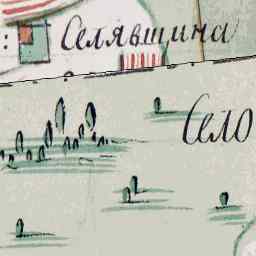 Селявщина
Село